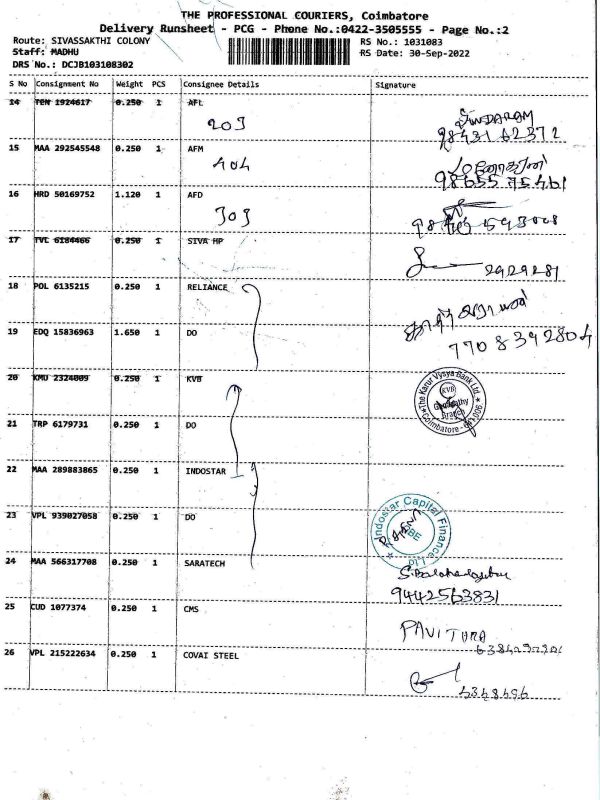 THE PROFESSIONAL COURIERS, Coimbatore
Delivery Runsheet - PCG - Phone No.:0422-3505555 - Page No.:2
Route: SIVASSAKTHI COLONY RS No.: 1031083
Staff: MADHU RS Date: 30-Sep-2022
DRS No.: DCJB103108302
S No Consignment No Weight PCS Consignee Details Signature
14 TEN 1924617 0.250 1 AFL
203 SUNDARAM
98431 62372
15 MAA 292545548 0.250 1 AFM
404
98655 75461
16 HRD 50169752 1.120 1 AFD
303
17 TVL 6184466 0.250 1 SIVA HP
2929281
18 POL 6135215 0.250 1 RELIANCE
19 EDQ 15836963 1.650 1 DO
7708392804
20 KMU 2324009 0.250 1 KVB
The Karur Vysya Bank Ltd.
KVB
Branch
Coimbatore
21 TRP 6179731 0.250 1 DO
22 MAA 289883865 0.250 1 INDOSTAR
23 VPL 939027058 0.250 1 DO
Indostar Capital Finance Ltd
24 MAA 566317708 0.250 1 SARATECH
9442563831
25 CUD 1077374 0.250 1 CMS
PAVITHRA
26 VPL 215222634 0.250 1 COVAI STEEL